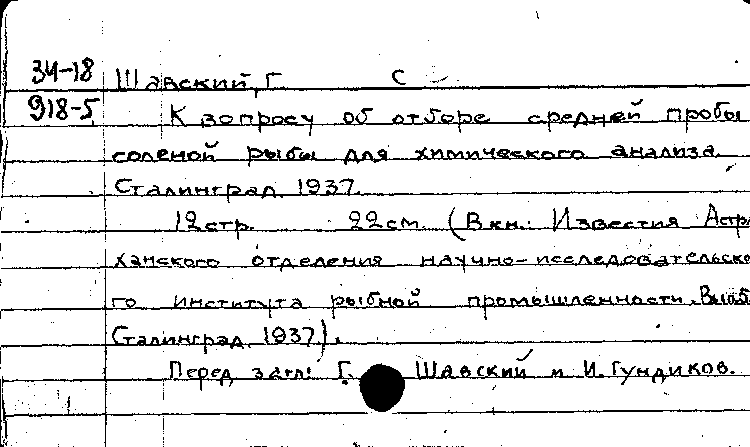 34-18 Шавский, Г. С
918-5 К вопросу об отборе средней пробы
соленой рыбы для химического анализа.
Сталинград. 1937.
12 стр. 22 см. (В кн.: Известия Астра
ханского отделения научно-исследовательско
го института рыбной промышленности.
Сталинград. 1937).
Перед загл: Г. Шавский и И. Гундиков.